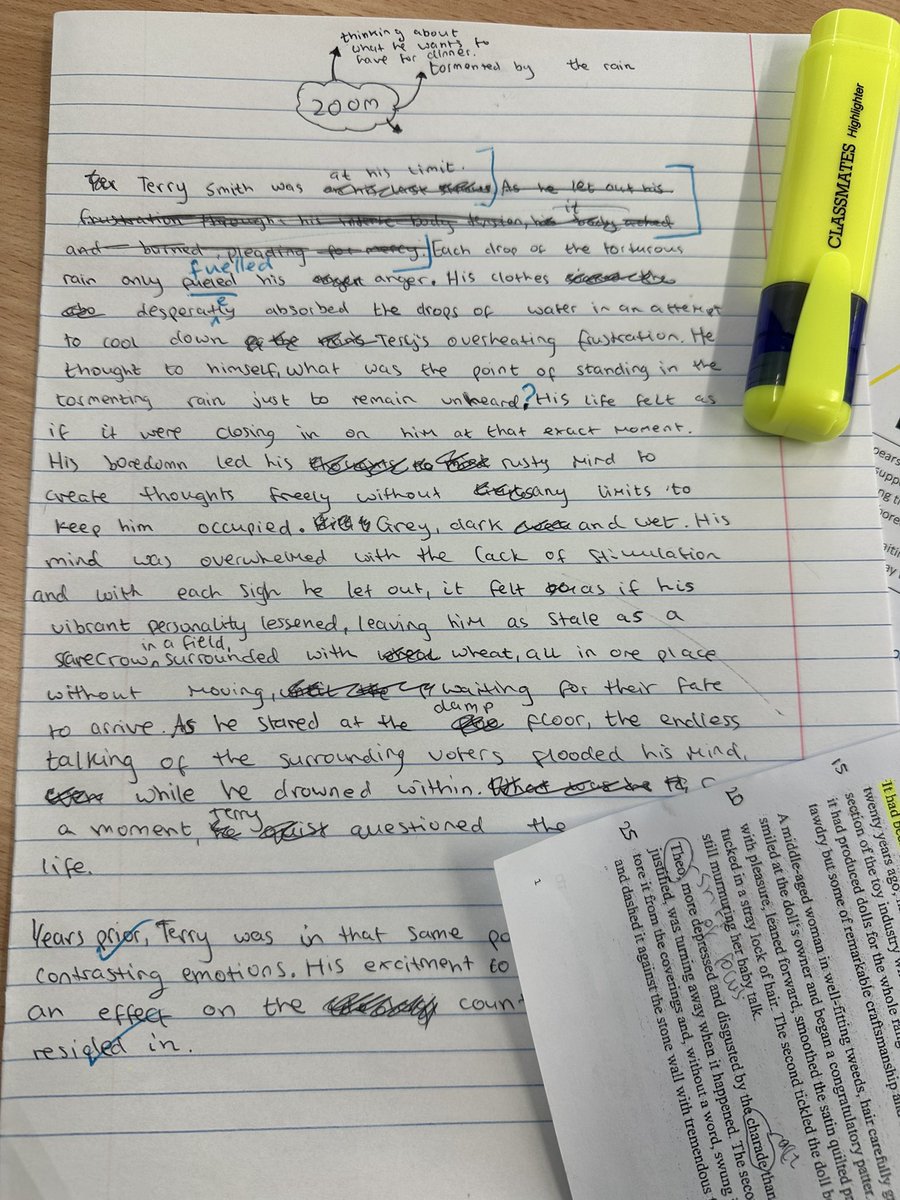 thinking about
what he wants to
have for dinner.
tormented by the rain
ZOOM
Terry Smith was at his limit. As he let out his
frustration through his body tension, it ached
and burned, pleading for mercy. Each drop of the torturous
fuelled
rain only fueled his anger. His clothes
desperatly absorbed the drops of water in an attempt
e
to cool down Terry's overheating frustration. He
thought to himself, what was the point of standing in the
tormenting rain just to remain unheard? His life felt as
if it were closing in on him at that exact moment.
His boredomn led his rusty mind to
create thoughts freely without any limits to
keep him occupied. Grey, dark and wet. His
mind was overwhelmed with the lack of stimulation
and with each sigh he let out, it felt as if his
vibrant personality lessened, leaving him as stale as a
scarecrow in a field, surrounded with wheat, all in one place
without moving, waiting for their fate
to arrive. As he stared at the damp floor, the endless
talking of the surrounding voters flooded his mind,
while he drowned within.
a moment, Terry questioned the
life.
Years prior, Terry was in that same
contrasting emotions. His excitment to
an effect on the coun
resided in.
CLASSMATES Highlighter
It had be
twenty years ago,
section of the toy industry w
it had produced dolls for the whole rang
tawdry but some of remarkable craftsmanship and
A middle-aged woman in well-fitting tweeds, hair carefully g
smiled at the doll's owner and began a congratulatory patte
with pleasure, leaned forward, smoothed the satin quilted p
tucked in a stray lock of hair. The second tickled the doll b
still murmuring her baby talk.
Theo, more depressed and disgusted by the charade than
justified, was turning away when it happened. The seco
tore it from the coverings and, without a word, swung
and dashed it against the stone wall with tremendous
15
20
25
1